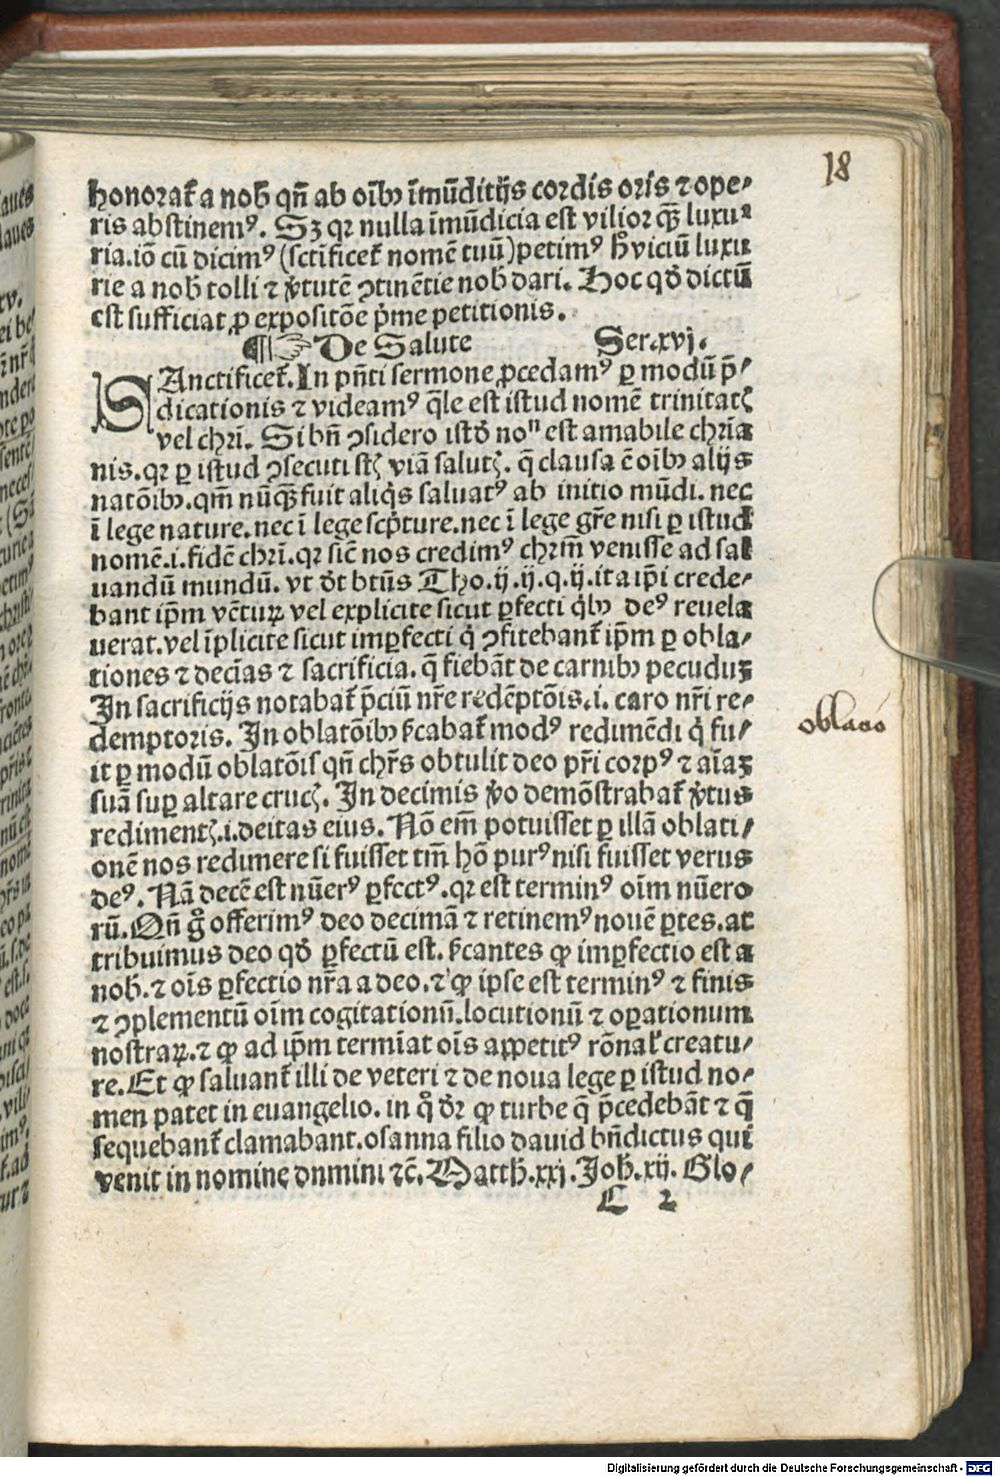 18
honorat᷑ a nob̄ qn̄ ab oīb₉ īmūditijs cordis oris ⁊ ope⸗
ris abstinemꝰ. Sꝫ qr nulla īmūdicia est vilior qꝫ̄ luxu⸗
ria. iō cū dicimꝰ (sctīficet᷑ nomē tuū) petimꝰ h̄ viciū luxu
rie a nob̄ tolli ⁊ v̄tutē ↄtinētie nob̄ dari. Hoc qd̄ dictū
est sufficiat ꝓ expositōe p̄me petitionis.
¶ ☞ De Salute Ser. xvj.
SAnctificet᷑. In pn̄ti sermone ꝓcedamꝰ ꝑ modū p̄⸗
dicationis ⁊ videamꝰ q̄le est istud nomē trinitatꝭ
vel chrī. Si bn̄ ↄsidero istd̄ noⁿ est amabile chrīa
nis. qr ꝑ istud ↄsecuti stꝭ viā salutꝭ. q̄ clausa ē oīb₉ alijs
natōib₉. qm̄ nūqꝫ̄ fuit aliqͥs saluatꝰ ab initio mūdi. nec
ī lege nature. nec ī lege scp̄ture. nec ī lege gr̄e nisi ꝑ istud
nomē .i. fidē chrī. qr sic̄ nos credimꝰ chrm̄ venisse ad sal
uandū mundū. vt dt̄ btūs Tho. ij. ij. q. ij. ita ip̄i crede⸗
bant ip̄m vētuꝝ vel explicite sicut ꝑfecti qͥb₉ deꝰ reuela
uerat. vel īplicite sicut imꝑfecti qͥ ↄfitebant᷑ ip̄m ꝑ obla⸗
tiones ⁊ decīas ⁊ sacrificia. q̄ fiebāt de carnib₉ pecuduꝫ
In sacrificijs notabat᷑ p̄ciū nr̄e redēptōis .i. caro nr̄i re⸗
demptoris. In oblatōib₉ ẜcabat᷑ modꝰ redimēdi qͥ fu⸗
it ꝑ modū oblatōis qn̄ chr̄s obtulit deo pr̄i corpꝰ ⁊ aīaꝫ
suā suꝑ altare crucꝭ. In decimis v̄o demōstrabat᷑ v̄tus
redimentꝭ .i. deitas eius. Nō em̄ potuisset ꝑ illā oblati⸗
onē nos redimere si fuisset tm̄ hō purꝰ nisi fuisset verus
deꝰ. Nā decē est nūerꝰ ꝑfectꝰ. qr est terminꝰ oīm nūero
rū. Qn̄ gͦ offerimꝰ deo decimā ⁊ retinemꝰ nouē ꝑtes. at
tribuimus deo qd̄ ꝑfectū est. ẜcantes ꝙ imꝑfectio est a
nob̄. ⁊ oīs ꝑfectio nr̄a a deo. ⁊ ꝙ ipse est terminꝰ ⁊ finis
⁊ ↄplementū oīm cogitationū. locutionū ⁊ oꝑationum
nostraꝝ. ⁊ ꝙ ad ip̄m termīat oīs appetitꝰ rōnał creatu⸗
re. Et ꝙ saluant᷑ illi de veteri ⁊ de noua lege ꝑ istud no⸗
men patet in euangelio. in qͦ dr̄ ꝙ turbe q̄ p̄cedebāt ⁊ q̄
sequebant᷑ clamabant. osanna filio dauid bn̄dictus qui
venit in nomine dnmini ⁊c̄. Matth. xxj. Joh̄. xij. Glo⸗
C 2
Digitalisierung gefördert durch die Deutsche Forschungsgemeinschaft - DFG